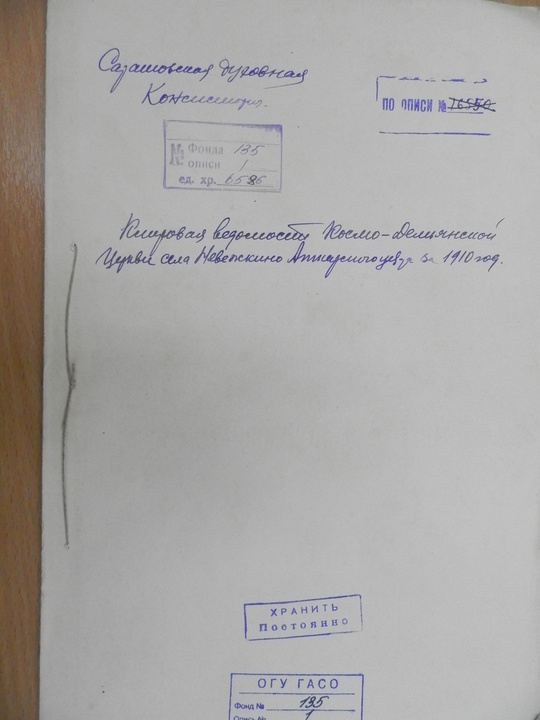 Саратовская духовная
Консистория.
ПО ОПИСИ № 76550
№ Фонда 135
описи 1
ед. хр. 6586
Клировая ведомость Космо-Демьянской
Церкви села Невежкино Аткарского уезда за 1910 год.
ХРАНИТЬ
Постоянно
ОГУ ГАСО
Фонд № 135
Опись № 1